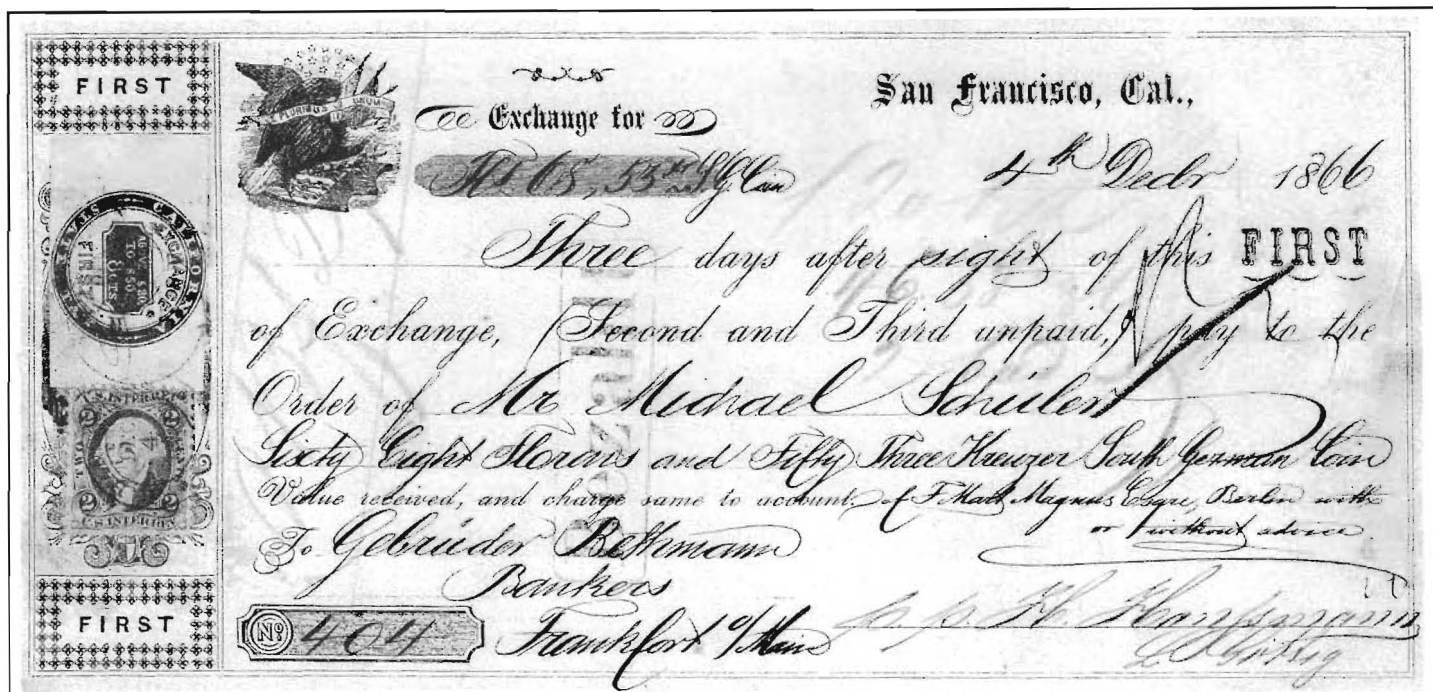 FIRST
E PLURIBUS UNUM
Exchange for
San Francisco, Cal.,
Fls 68,53 Kr S.G. Coin
4th Decbr 1866
Three days after sight of this FIRST
of Exchange, (Second and Third unpaid,) pay to the
Order of Mr Michael Schüler
Sixty Eight Florins and Fifty Three Kreuzer South German Coin
Value received, and charge same to account of F. Mart Magnus Esqre, Berlin with
or without advice.
To Gebrüder Bethmann
Bankers
Frankfort o/Main
No 404
p. p. H. Haussmann
FIRST
CALIFORNIA
EXCHANGE
FIRST
8 CTS
U.S. INTER. REV.
TWO CENTS
2
2
2
2
U.S. INTER. REV.
Bezahlt